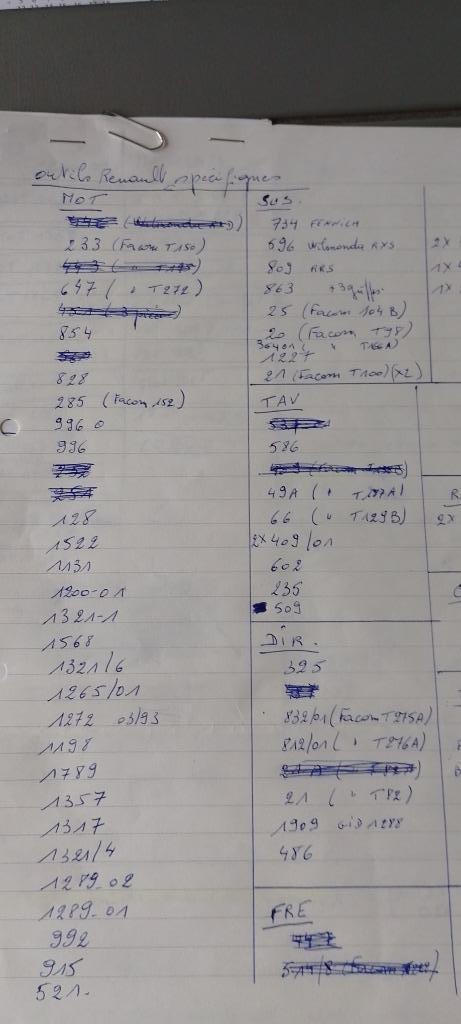 outils Renault spécifiques
MOT
233 (Facom T150)
647 ( " T272)
854
828
285 (Facom 152)
996 0
996
128
1522
1131
1200-01
1321-1
1568
1321/6
1265/01
1272 03/93
1198
1789
1357
1317
1321/4
1289-02
1289-01
992
915
521.
SUS.
734 FENWICH
596 Wilmonda RXS
809 RRS
863
25 (Facom 104B)
20 (Facom T98)
1227
21 (Facom T100)(x2)
TAV
586
49A ( " T137A)
66 ( " T129B)
2x409/01
602
235
509
DIR.
325
832/01 (Facom T275A)
812/01 ( " T276A)
21 ( " T82)
1909 GID 1288
486
FRE
2X
1X
1X
R
2X